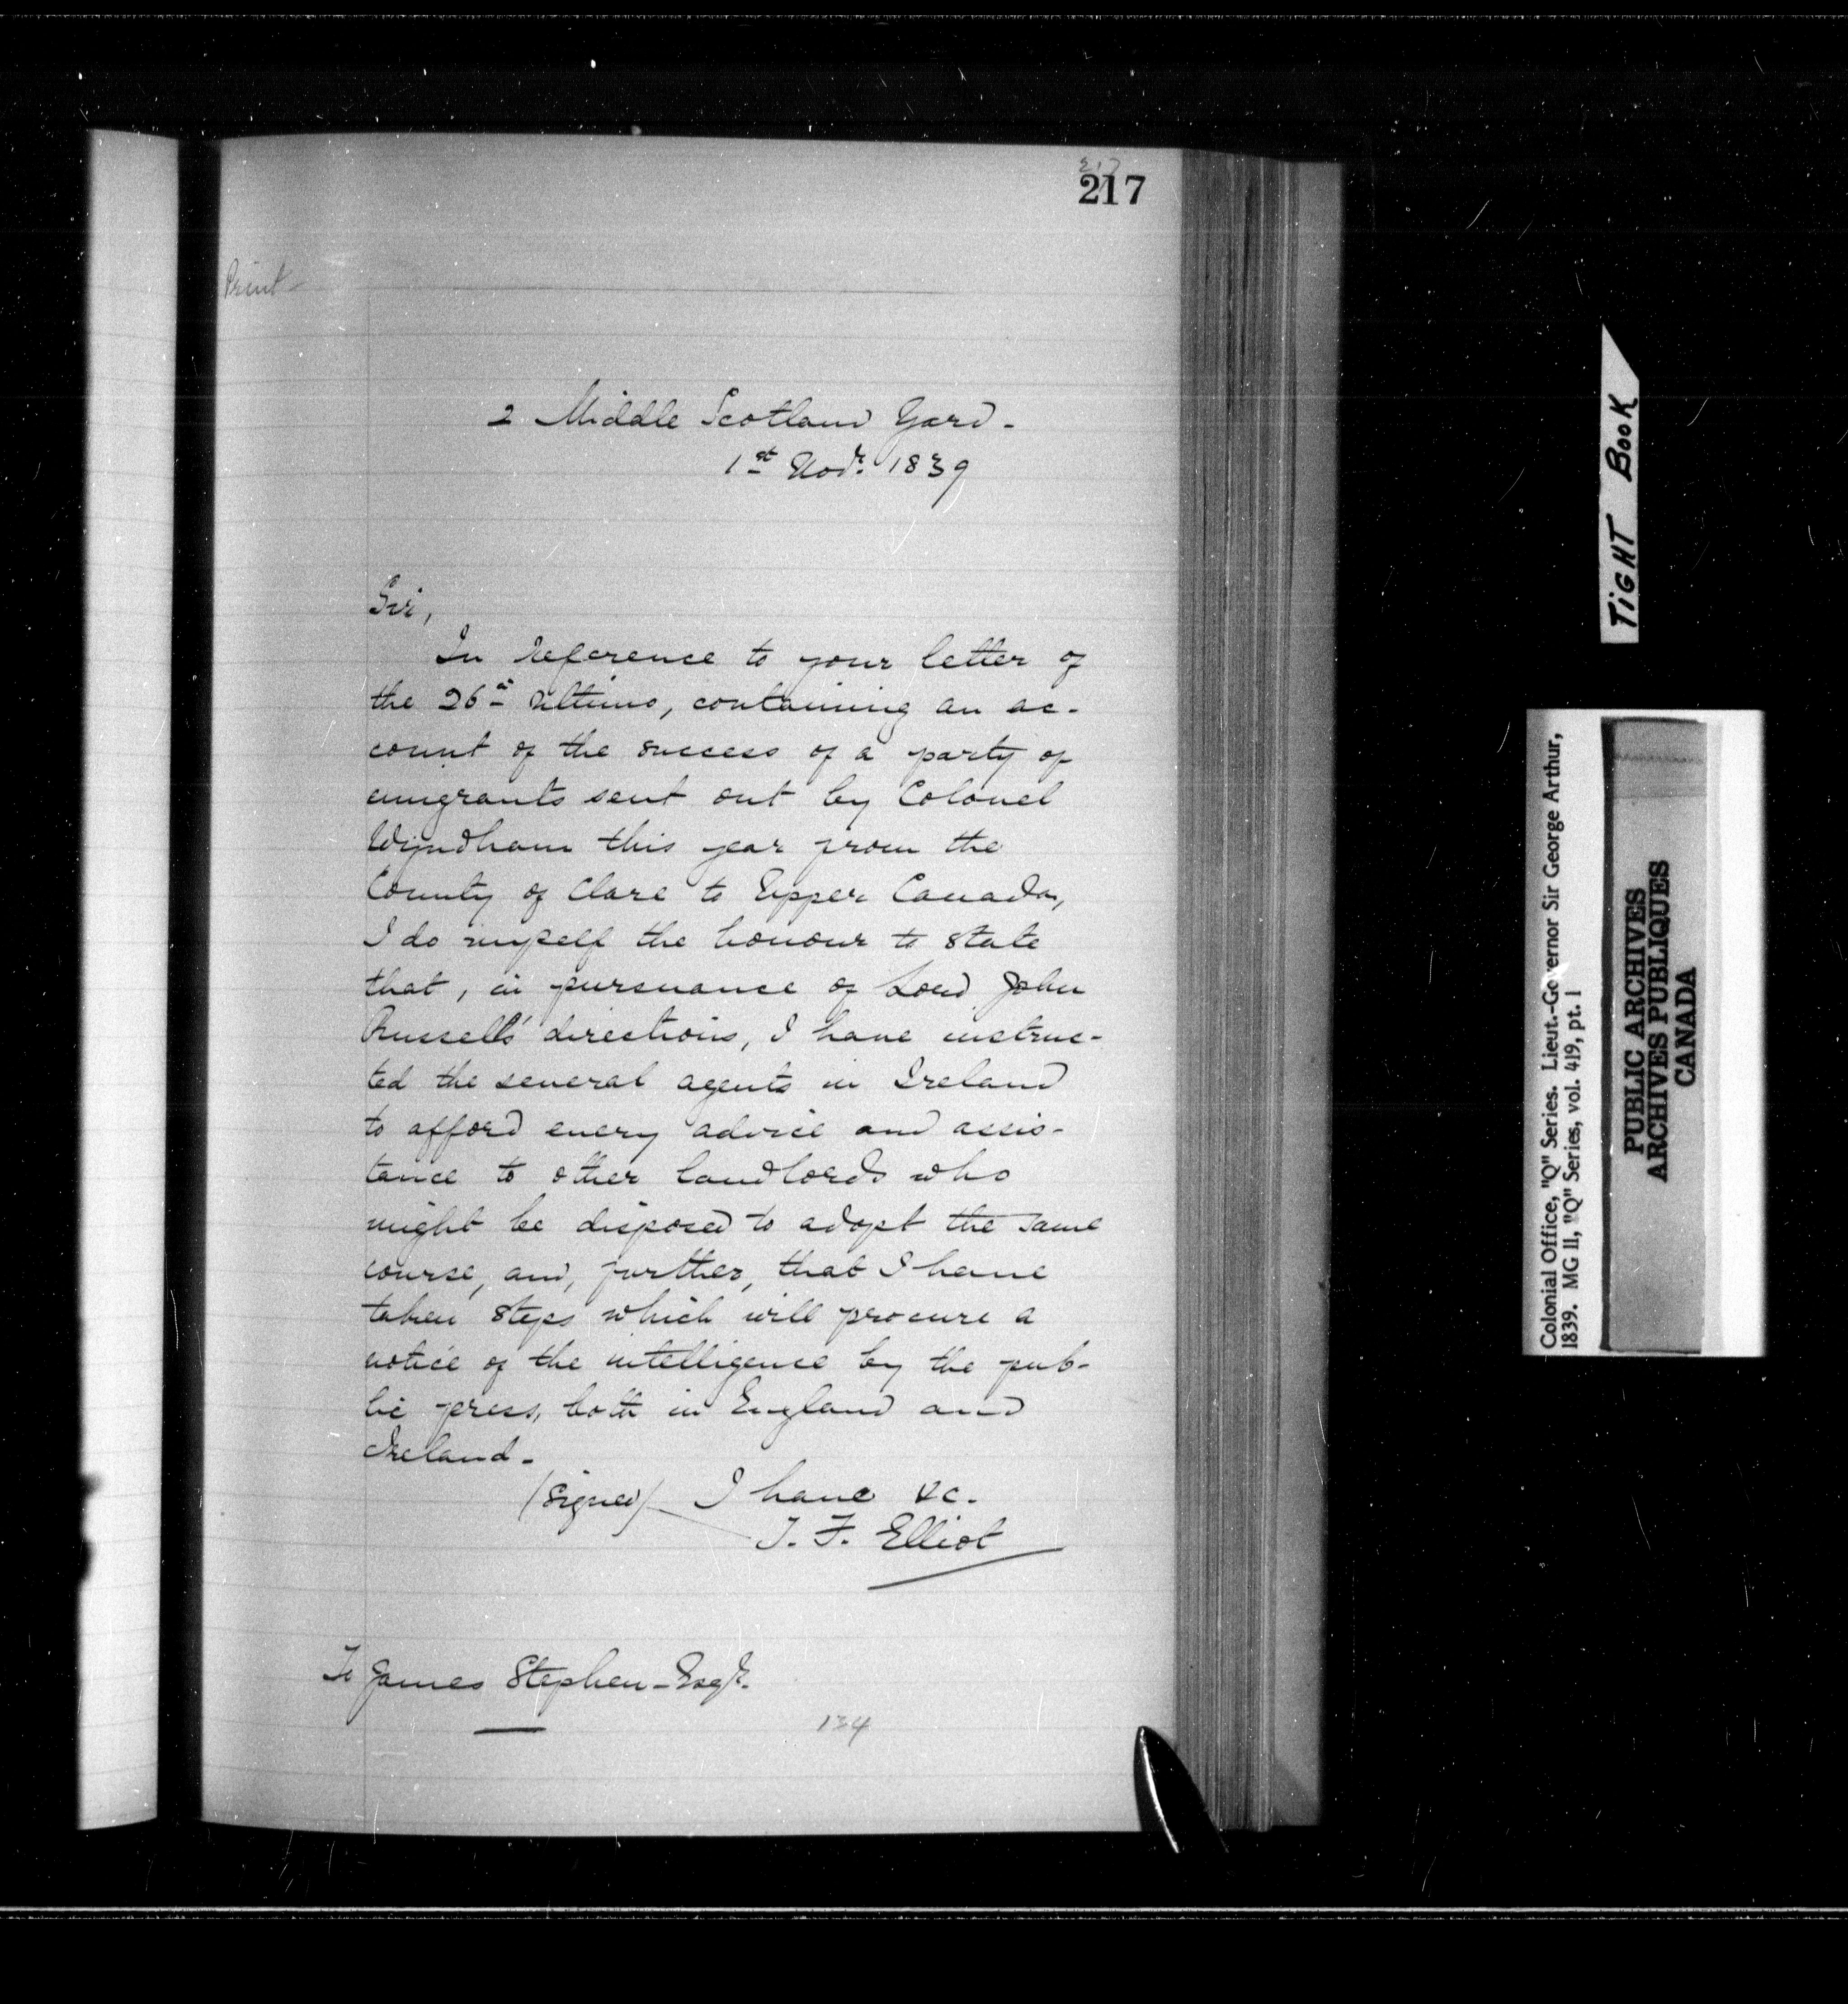 217
217
Print
2 Middle Scotland Yard -
1st Novr. 1839
Sir,
In reference to your letter of
the 26th ultimo, containing an ac-
count of the success of a party of
emigrants sent out by Colonel
Wyndham this year from the
County of Clare to Upper Canada,
I do myself the honour to state
that, in pursuance of Lord John
Russell's directions, I have instruc-
ted the several agents in Ireland
to afford every advice and assis-
tance to other landlords who
might be disposed to adopt the same
course, and, further, that I have
taken steps which will procure a
notice of the intelligence by the pub-
lic press, both in England and
Ireland -
(signed) I have &c.
T. F. Elliot
To James Stephen - Esqr.
134
TIGHT BOOK
Colonial Office, "Q" Series. Lieut.-Governor Sir George Arthur,
1839. MG 11, "Q" Series, vol. 419, pt. 1
PUBLIC ARCHIVES
ARCHIVES PUBLIQUES
CANADA